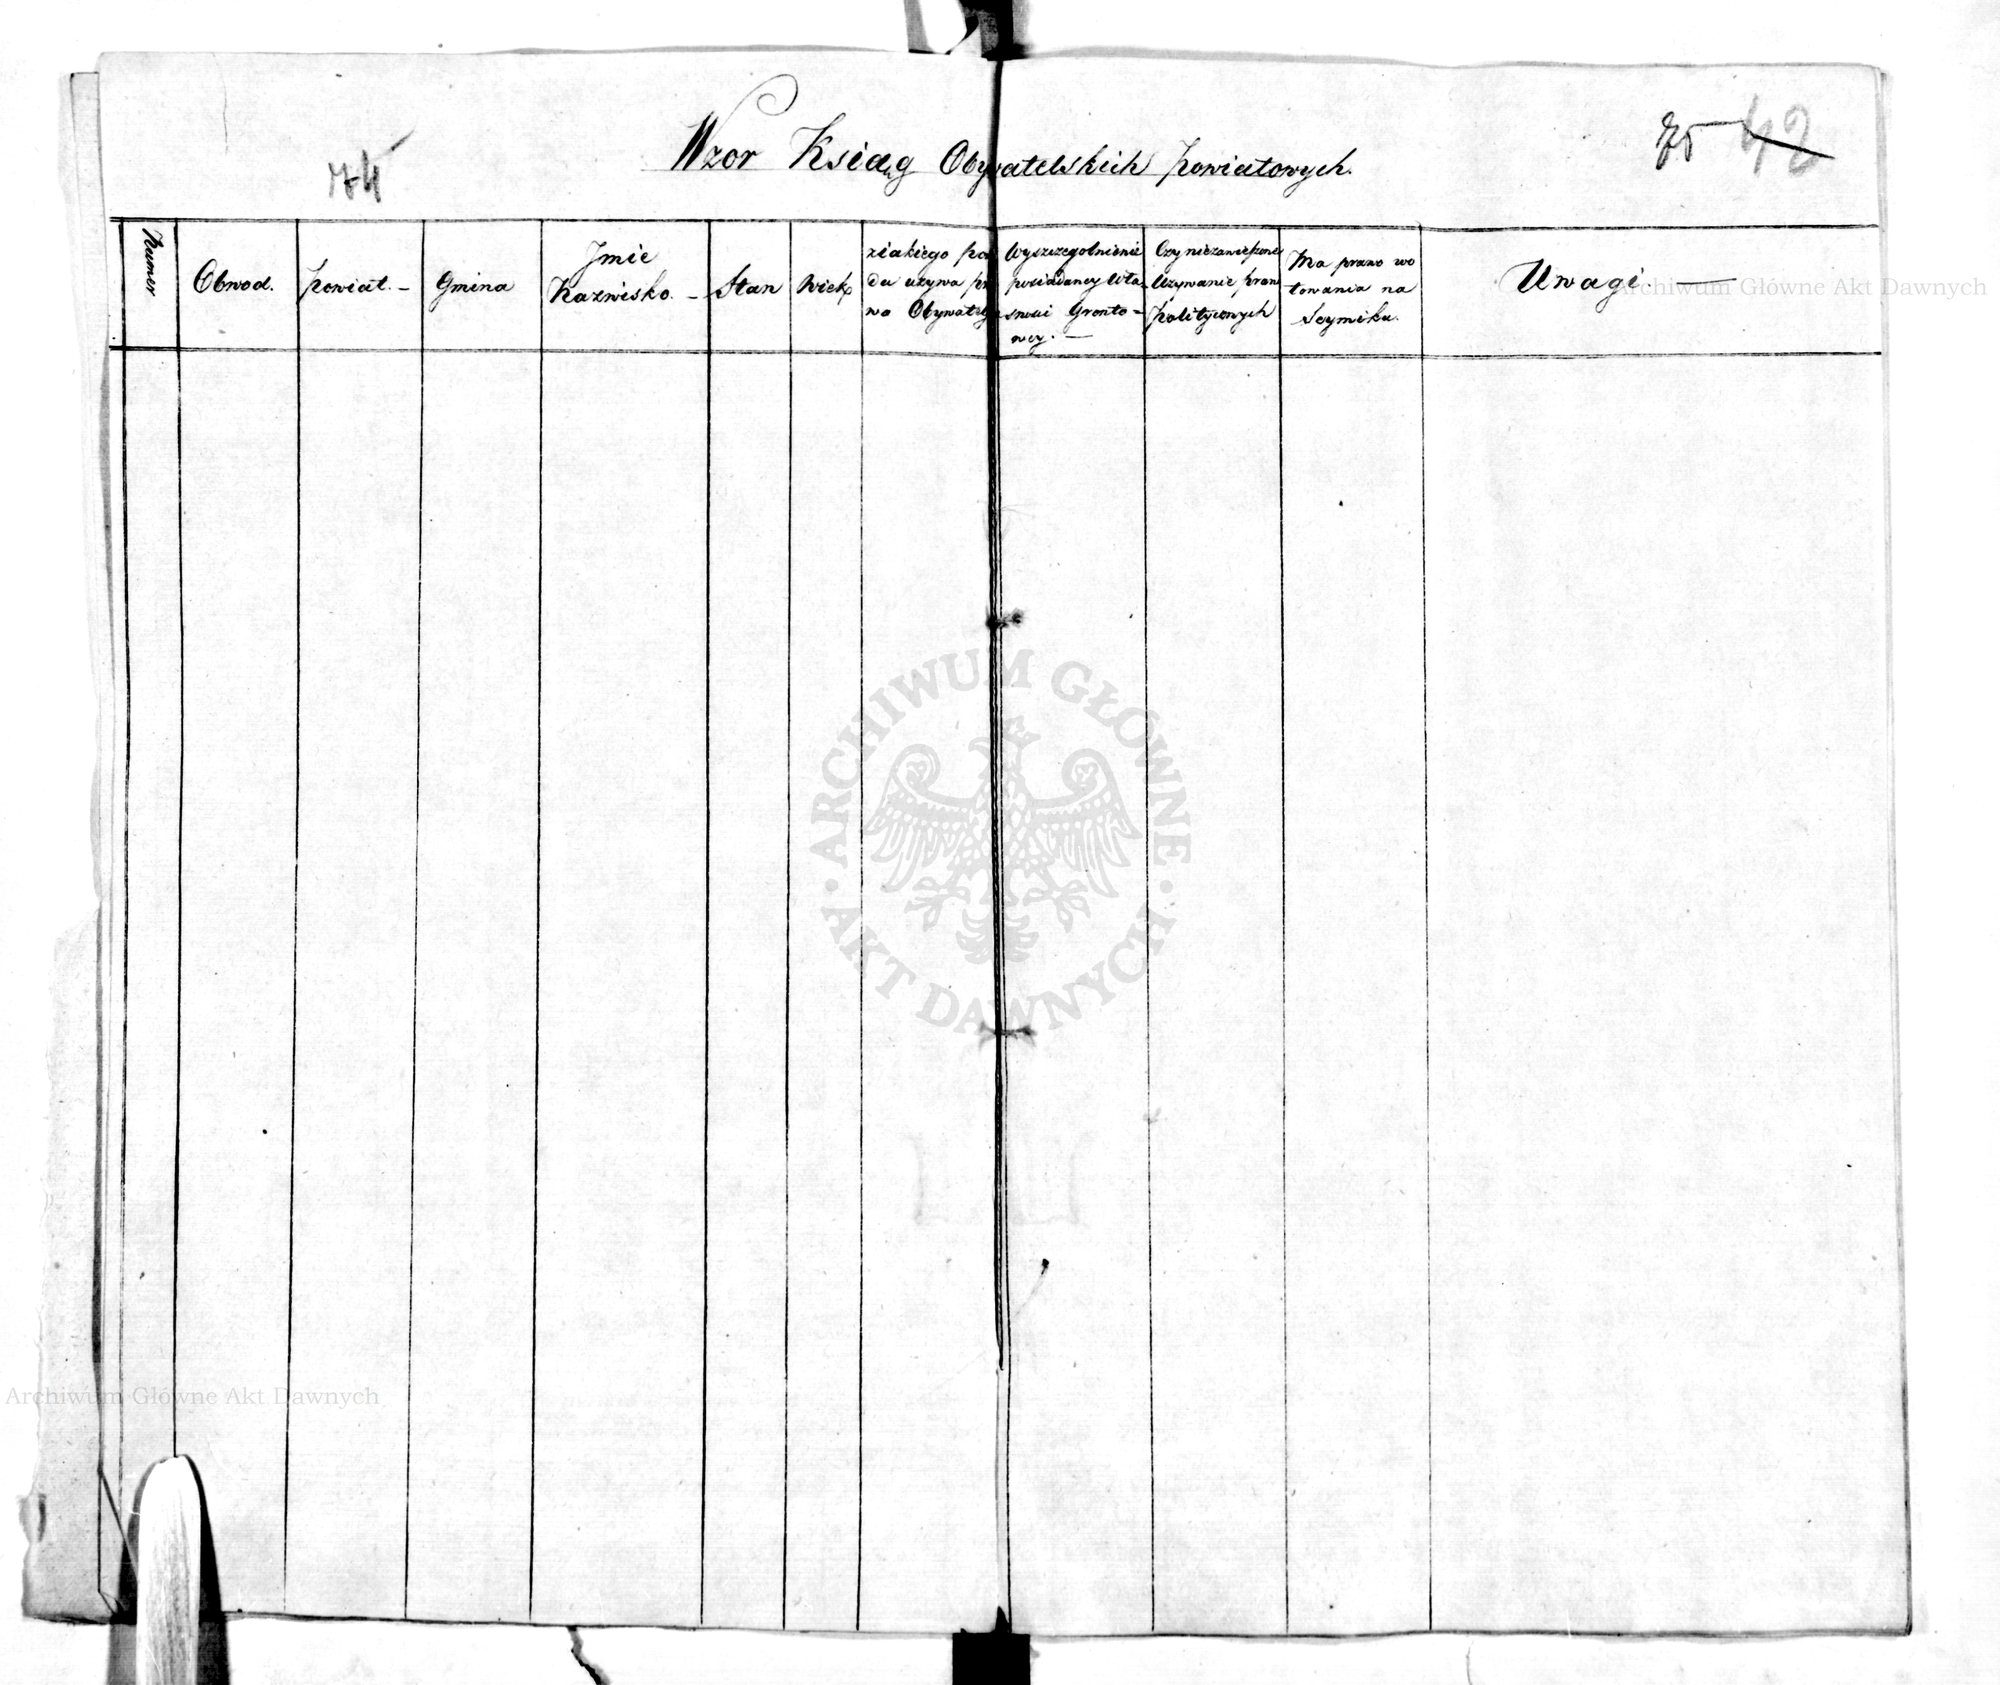 74
75 42
Wzor Ksiąg Obywatelskich Powiatowych.
Numer
Obwod.
Powiat. -
Gmina
Jmie
Nazwisko. -
Stan
Wiek
ziakiego po
du używa pr
wo Obywatels
Wyszczegolnienie
posiadaney Wła
sności Grunto=
wey. -
Czy niezawieszone
Używanie praw
Politycznych
Ma prawo wo
towania na
Seymiku.
Uwagi. -
Archiwum Główne Akt Dawnych
ARCHIWUM GŁÓWNE
· AKT DAWNYCH ·
Archiwum Główne Akt Dawnych